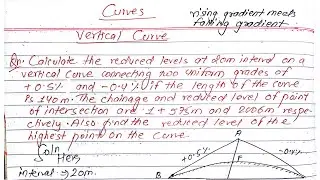 Curves
rising gradient meets
falling gradient
Vertical Curve
Qn. Calculate the reduced levels at 20m interval on a
vertical curve connecting two uniform grades of
+0.5% and -0.4% if the length of the curve
is 140m. The chainage and reduced level of point
of intersection and 1+575m and 2006m respe-
ctively. Also find the reduced level of the
highest point on the curve.
Soln
Here,
interval ⇒ 20m.
A
+0.5%
-0.4%
F
B